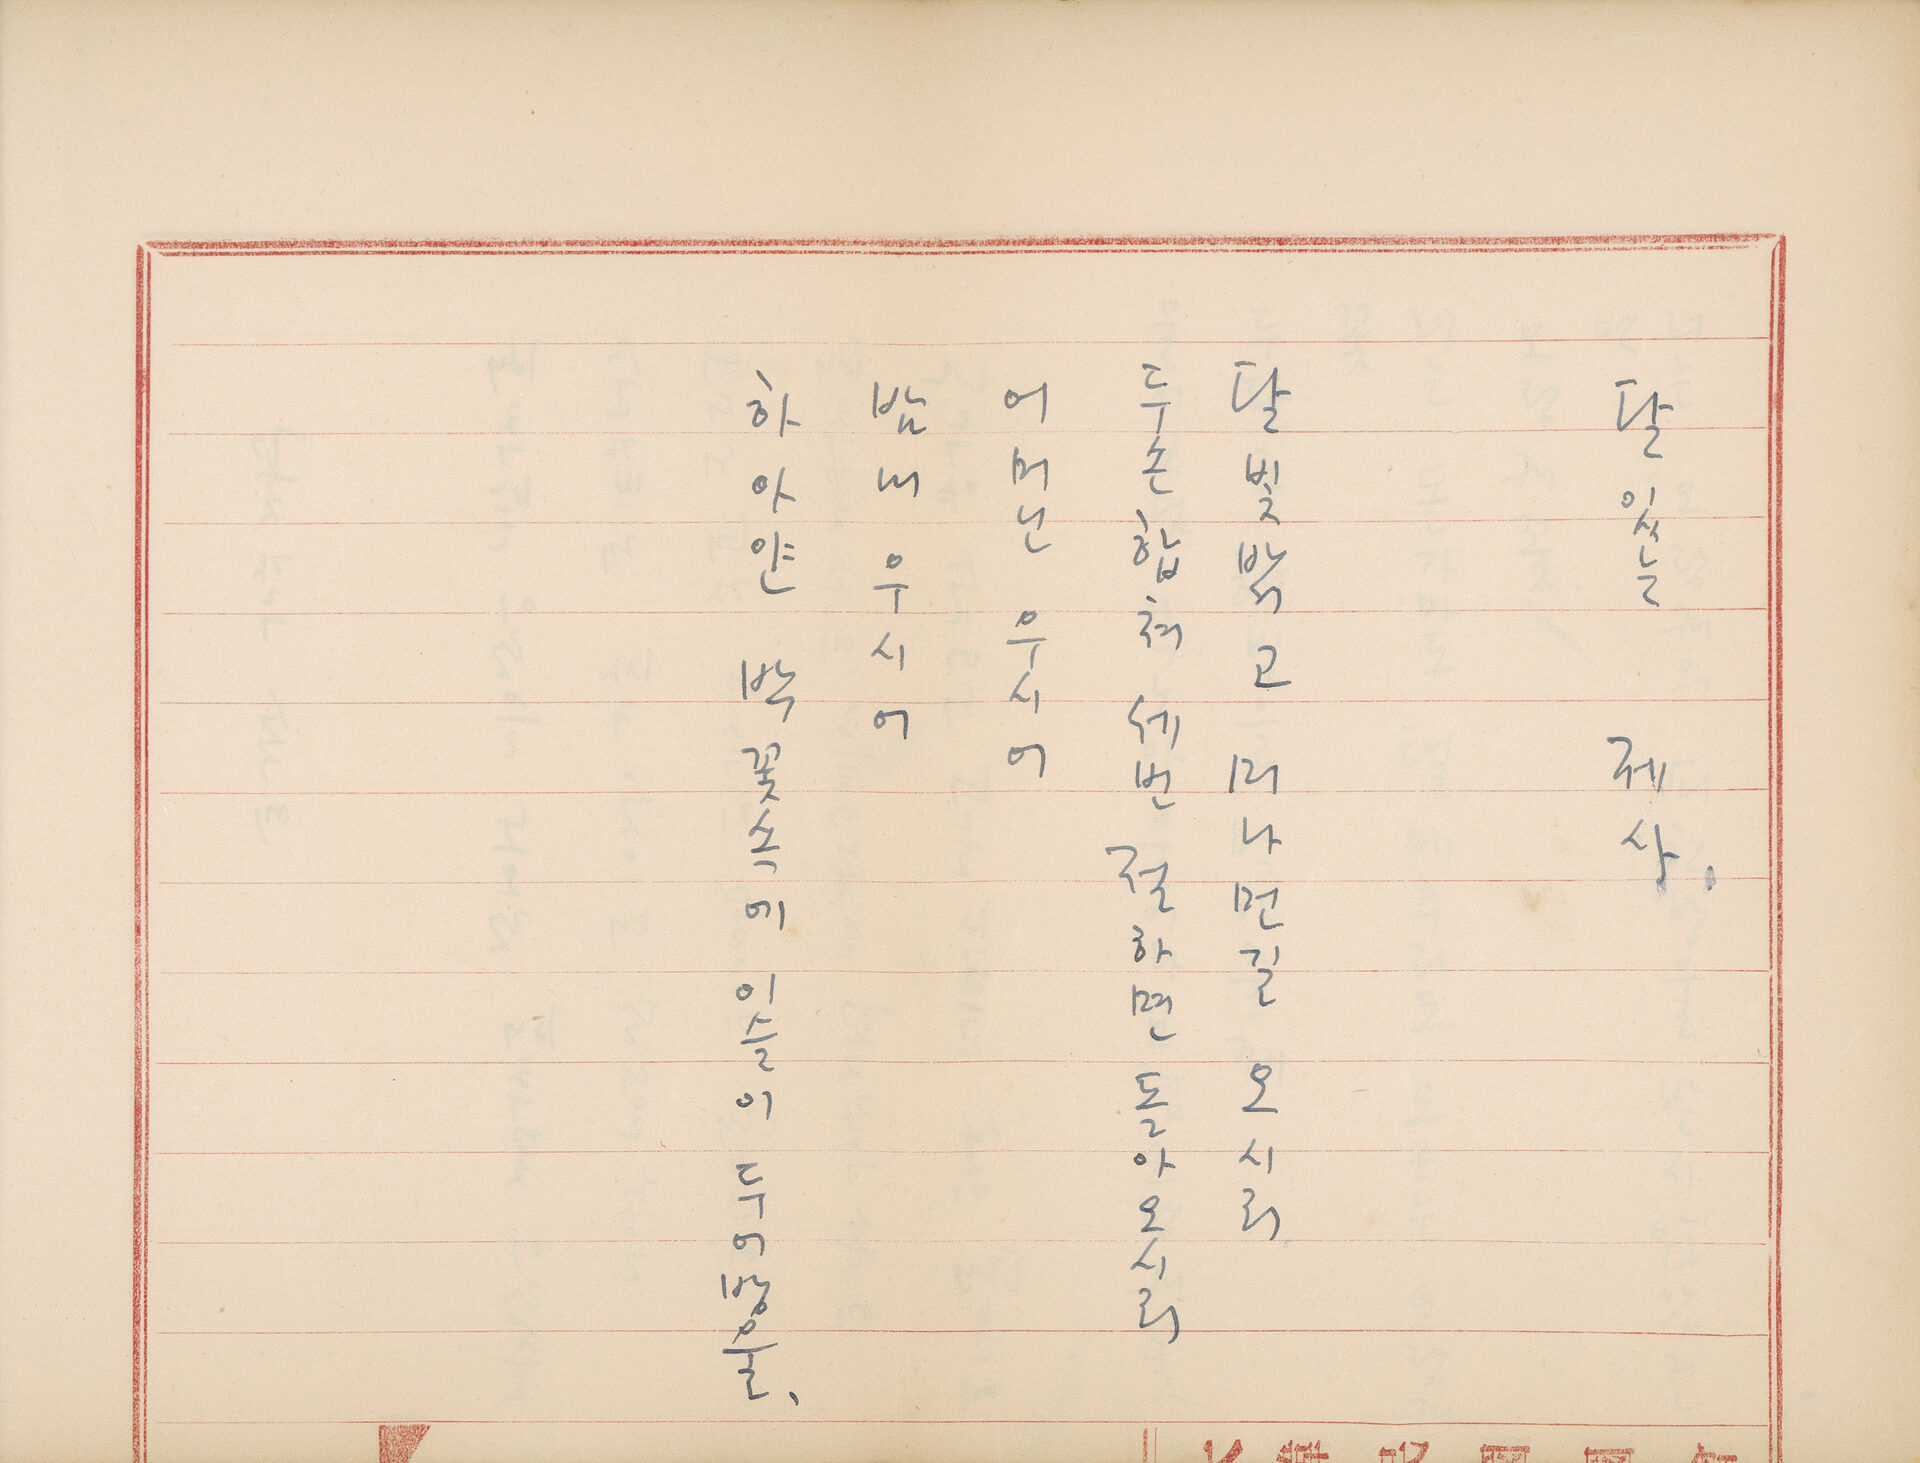 달 있는 제사.
달빛밟고 머나먼길 오시리
두손 합쳐 세번 절하면 돌아오시리
어머닌 우시어
밤내 우시어
하아얀 박꽃속에 이슬이 두어방울.